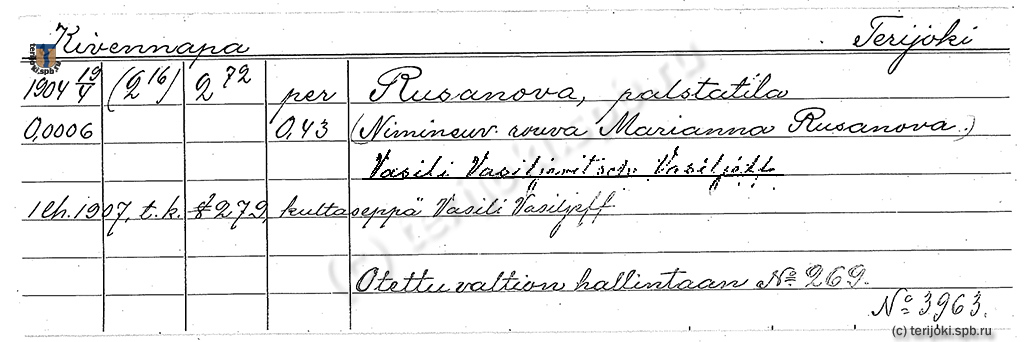 Kivennapa Terijoki
1904 19/4 (2 16) 2 72 per Rusanova, palstatila
0,0006 0,43 (Nimineuv. rouva Marianna Rusanova.)
Vasili Vasiljevitsch Vasiljeff
1 lh. 1907, t.k. § 272, kultaseppä Vasili Vasiljeff
Otettu valtion hallintaan No 269.
No 3963.
terijoki.spb
(c) terijoki.spb.ru
(c) terijoki.spb.ru